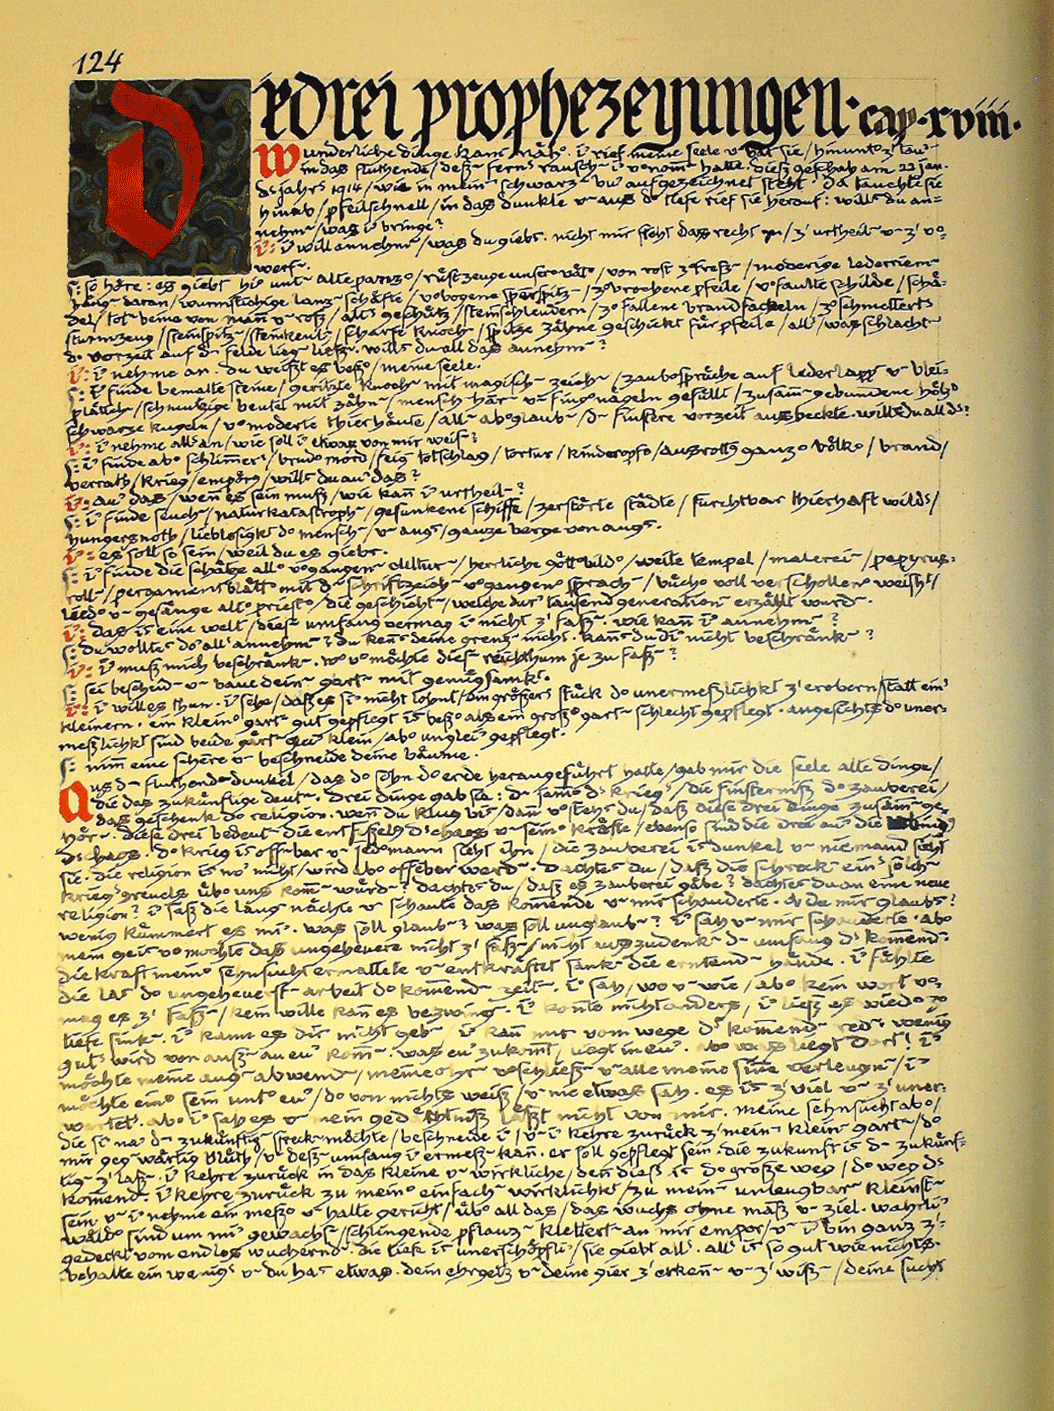 124
Die drei prophezeyungen · cap · xviii ·
wunderliche dinge kam̄ näh° · i' rief meine seele v~ bat sie / hinunt° z' tau=
in das fluthende / deß~ fern's rausch~ i' v°nom̄~ hatte · dieß geschah am 22 jan·
ds jahrs 1914 / wie in mein~ schwarz~ bu' aufgezeichnet steht · da tauchte sie
hinab / pfeilschnell / in das dunkle v~ aus d° tiefe rief sie herauf : willst du an=
nehm~ / was i' bringe ?
i': i' will annehm~ / was du giebst · nicht mir steht das recht z' / z' urtheil~ v~ z' v°=
werf~ ·
s: so höre : es giebt hi° unt~ alte panz° / rüstzeuge unser° vät° / von rost z°freß~ / moderige lederriem~
häng~ daran / wurmstichige lanz~schäfte / v°bogene speerspitz~ / z°brochene pfeile / v°faulte schilde / schä=
del / tot~ beine von mañ v~ roß / alte geschütz~ / steinschleudern / z°fallene brandfackeln / z°schmettert's
sturmzeug / steinspitz~ / steinkeul~ / scharfe knoch~ / spitze zähne geschickt für pfeile / all's / was schlacht~
d° vorzeit auf d~ felde lieg~ ließ~ · willst du all das annehm~ ?
i': i' nehme an · du weißt es beß° / meine seele ·
s: i' finde bemalte steine / geritzte knoch~ mit magisch~ zeich~ / zaub°sprüche auf lederlapp~ v~ blei=
plättch~ / schmutzige beutel mit zähn~ / mensch~här~ v~ fing°nägeln gefüllt / zusam̄~gebundene hölz°
schwarze kugeln / v°moderte thierhäute / all~ ab°glaub~ / d~ finstere vorzeit ausheckte · willst du all ds ?
i': i' nehme all's an / wie soll i' etwas von mir weis~ ?
s: i' finde ab° schlim̄er's / brud°mord / feig~ totschlag / tortur / kinderopf° / ausrottg ganz° völk° / brand /
verrath / krieg / empörg / willst du au' das ?
i': au' das / weñ es sein muß / wie kañ i' urtheil~ ?
s: i' finde seuch~ / naturkatastroph~ / gesunkene schiffe / zerstörte städte / furchtbar thierhaft wild's /
hungersnoth / lieblosigkt d° mensch~ / v~ angst / ganze berge von angst ·
i': es soll so sein / weil du es giebst ·
s: i' finde die schätze all° v°gangen~ cultur~ / herrliche gött°bild° / weite tempel / malerei~ / papyrus=
roll~ / pergamentblätt° mit d~ schriftzeich~ v°gangen~ sprach~ / büch° voll verscholler weisht /
lied° v~ gesänge alt° priest° / die geschicht~ / welche dur' tausend generation~ erzählt wurd~ ·
i': das ist eine welt / dies~ umfang vermag i' nicht z' faß~ · wie kañ i' annehm~ ?
s: du wolltest do' all's annehm~ ? du kenst deine grenz~ nicht · kañst du di' nicht beschränk~ ?
i': i' muß mich beschränk~ · w° v°möchte dies~ reichthum je zu faß~ ?
s: sei bescheid~ v~ baue dein~ gart~ mit genügsamkt ·
i': i' will es thun · i' sehe / daß es si' nicht lohnt / ein größer's stück d° unermeßlichkt z' erobern / statt ein's
kleinern · ein klein° gart~ gut gepflegt ist beß° als ein groß° gart~ schlecht gepflegt · angesichts d° uner=
meßlichkt sind beide gärt~ glei' klein / ab° unglei' gepflegt ·
s: nim̄ eine schere v~ beschneide deine bäume ·
aus d~ fluthend~ dunkel / das d° sohn d° erde herangeführt hatte / gab mir die seele alte dinge /
die das zukünftige deut~ · drei dinge gab sie : d~ jam̄° ds kriegs / die finsterniß d° zauberei /
das geschenk d° religion · wen̄ du klug bist / dan̄ v°stehst du / daß diese drei dinge zusam̄~ge=
hör~ · diese drei bedeut~ die entfesselg ds chaos v~ sein° kräfte / ebenso sind die drei au' die bindg
ds chaos · d° krieg ist off~bar v~ jedermann sieht ihn / die zauberei ist dunkel v~ niemand sieht
sie · die religion ist no' nicht / wird ab° offenbar werd~ · dachtest du / daß die schreck~ ein's solch~
kriegsgreuels üb° uns kom̄~ würd~ ? dachtest du / daß es zauberei gäbe ? dachtest du an eine neue
religion ? i' saß die lang~ nächte v~ schaute das kom̄ende v~ mir schauderte · o da mir glaubst ?
wenig kum̄ert es mi' · was soll glaub~ ? was soll unglaub~ ? i' sah v~ mir schauderte · ab°
mein geist v°mochte das ungeheuere nicht z' faß~ / nicht auszudenk~ d~ umfang ds kom̄end~ ·
die kraft mein° sehnsucht ermattete v~ entkräftet sank~ die erntend~ hände · i' fühlte
die last d° ungeheuerst~ arbeit d° kom̄end~ zeit~ · i' sah / wo v~ wie / ab° kein wort v°=
mag es z' faß~ / kein wille kañ es bezwing~ · i' konte nicht anders / i' ließ es wied° z°
tiefe sink~ · i' kañ es dir nicht geb~ / i' kañ nur vom wege ds kom̄end~ red~ · wenig
gut's wird von auß~ an eu' kom̄~ · was eu' zukom̄t / liegt in eu' · ab° was liegt dort ! i'
möchte meine aug~ abwend~ / meine ohr~ v°schließ~ v~ alle meine sinne verleugn~ / i'
möchte ein° sein unt° eu' / d° von nichts weiß / v~ nie etwas sah · es ist z' viel v~ z' uner=
wartet · ab° i' sah es v~ mein gedächtniß läßt nicht von mir · meine sehnsucht ab° /
die si' na' d~ zukünftig~ streck~ möchte / beschneide i' / v~ i' kehre zurück z' mein~ klein~ gart~ / d°
mir geg~wärtig blüht / v~ deß~ umfang i' ermeß~ kañ · er soll gepflegt sein · die zukunft ist d~ zukünf=
tig~ z' laß~ · i' kehre zurück in das kleine v~ wirkliche / deñ dieß ist d° große weg / d° weg ds
kom̄end~ · i' kehre zurück zu mein° einfach~ wirklichkt / zu mein~ unleugbar~ kleinst~
sein v~ i' nehme ein meß° v~ halte gericht / üb° all das / das wuchs ohne maß v~ ziel · wahrli'
wäld° sind um mi' gewachs~ / schlingende pflanz~ klettert~ an mir empor / v~ i' bin ganz z'=
gedeckt vom endlos wuchernd~ · die tiefe ist unerschöpfli' / sie giebt all's · all's ist so gut wie nichts ·
behalte ein wenig's v~ du hast etwas · dein ehrgeiz v~ deine gier z' erken̄~ v~ z' wiß~ / deine sucht